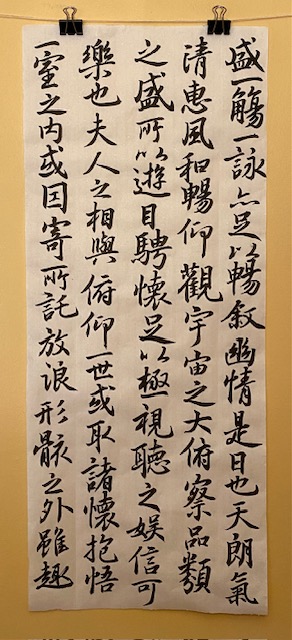 盛一觴一詠亦足以暢敘幽情是日也天朗氣
清惠風和暢仰觀宇宙之大俯察品類
之盛所以遊目騁懷足以極視聽之娱信可
樂也夫人之相與俯仰一世或取諸懷抱悟
一室之内或因寄所託放浪形骸之外雖趣